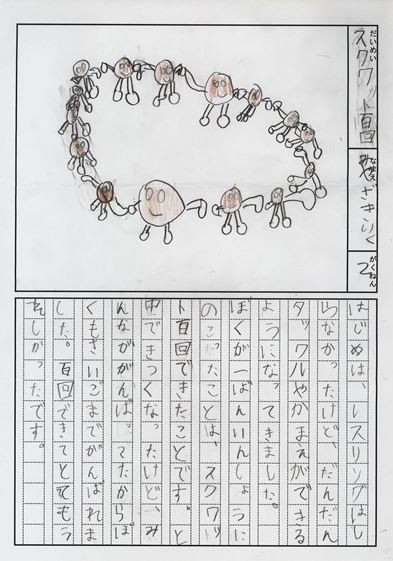 だいめい
スクワット百回
なまえ
みやざきいく
がくねん
2
はじめは、レスリングはし
らなかったけど、だんだん
タックルやかまえができる
ようになってきました。
ぼくが一ばんいんしょうに
のこったことは、スクワッ
ト百回できたことです。と
中できつくなったけど、み
んなががんばってたからぼ
くもさいごまでがんばれま
した。百回できてとてもう
れしかったです。